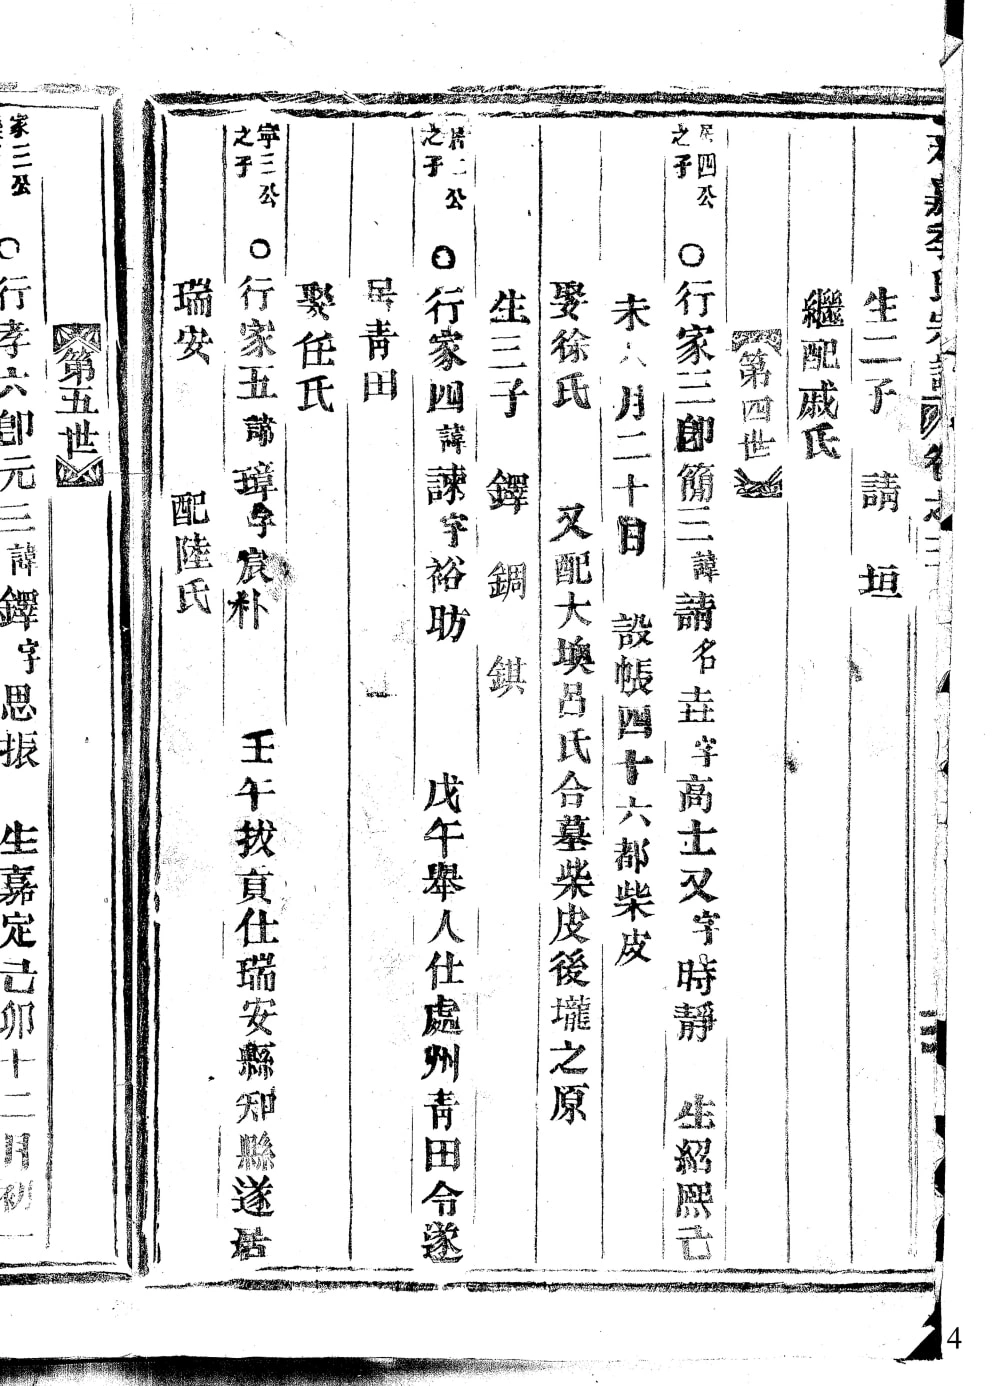 嘉李氏宗譜
生二子 請 垣
繼配戚氏
第四世
居四公之子 〇行家三卽簡三諱請名壵字高士又字時靜 生紹熙己
未八月二十日 設帳四十六都柴皮
娶徐氏 又配大㘤呂氏合墓柴皮後壠之原
生三子 鐸 鋼 錤
居二公之子 〇行家四諱諫字裕昉 戊午舉人仕處州青田令遂
居青田
娶任氏
寧三公之子 〇行家五諱璋字宸朴 壬午拔貢仕瑞安縣知縣遂居
瑞安 配陸氏
第五世
家三公 〇行孝六卽元三諱鐸字思振 生嘉定己卯十二月初一
4